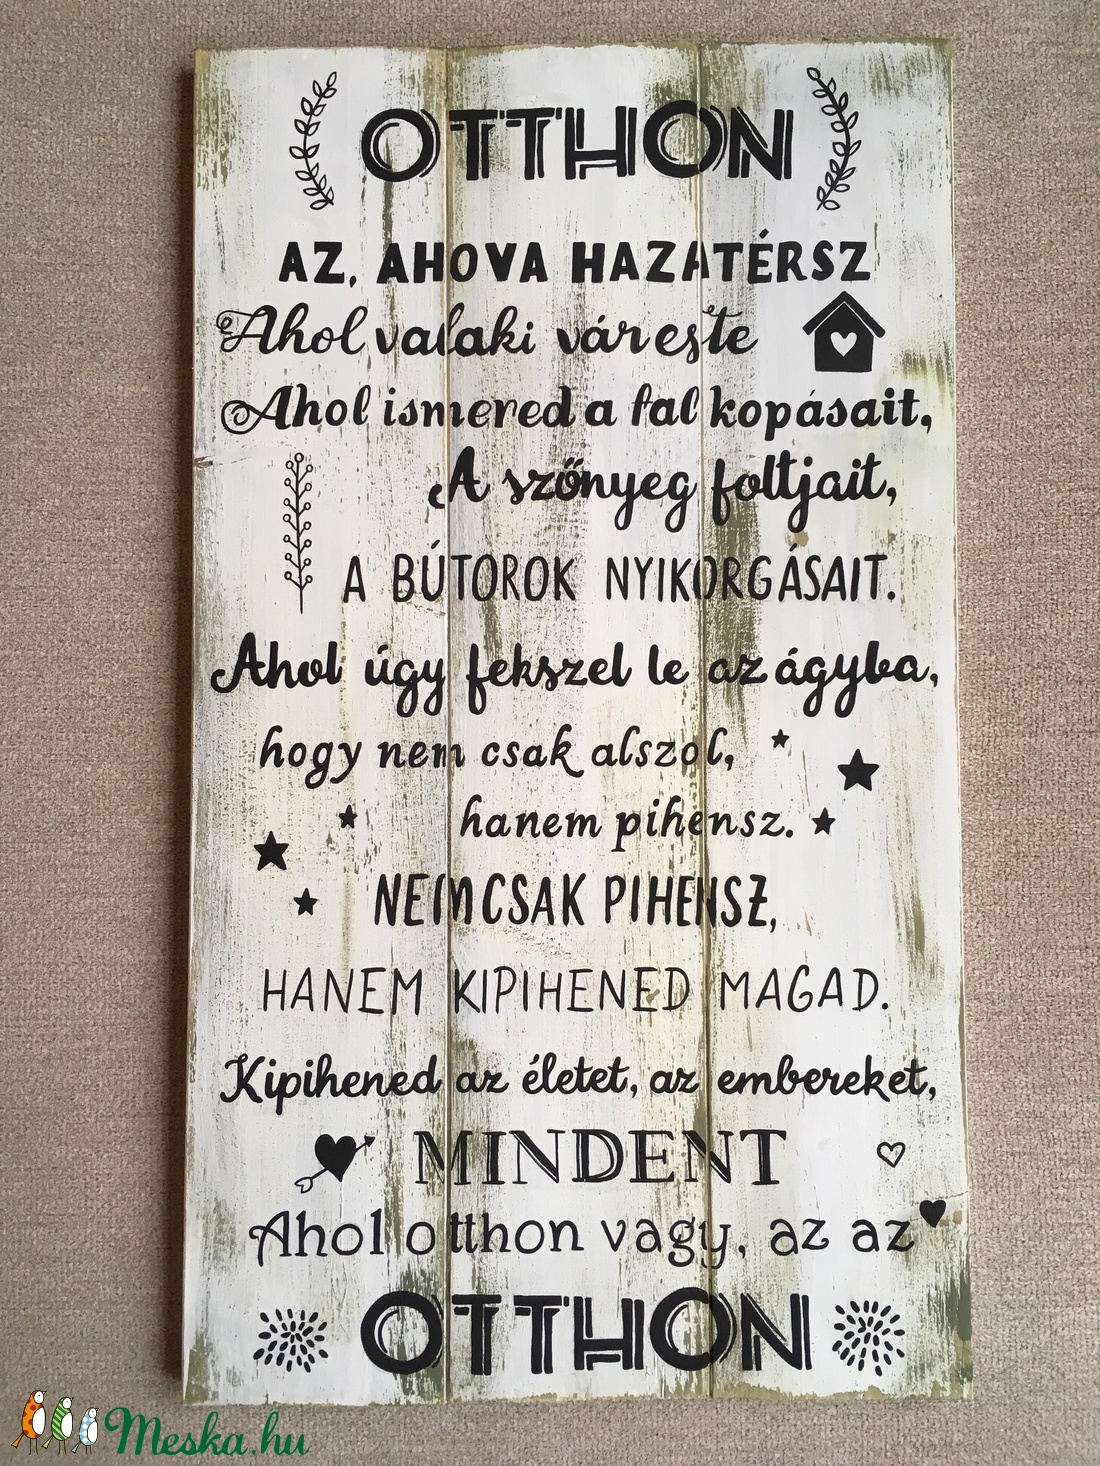 OTTHON
AZ, AHOVA HAZATÉRSZ
Ahol valaki vár este
Ahol ismered a fal kopásait,
A szőnyeg foltjait,
A BÚTOROK NYIKORGÁSAIT.
Ahol úgy fekszel le az ágyba,
hogy nem csak alszol,
hanem pihensz.
NEMCSAK PIHENSZ,
HANEM KIPIHENED MAGAD.
Kipihened az életet, az embereket,
MINDENT
Ahol otthon vagy, az az
OTTHON
Meska.hu